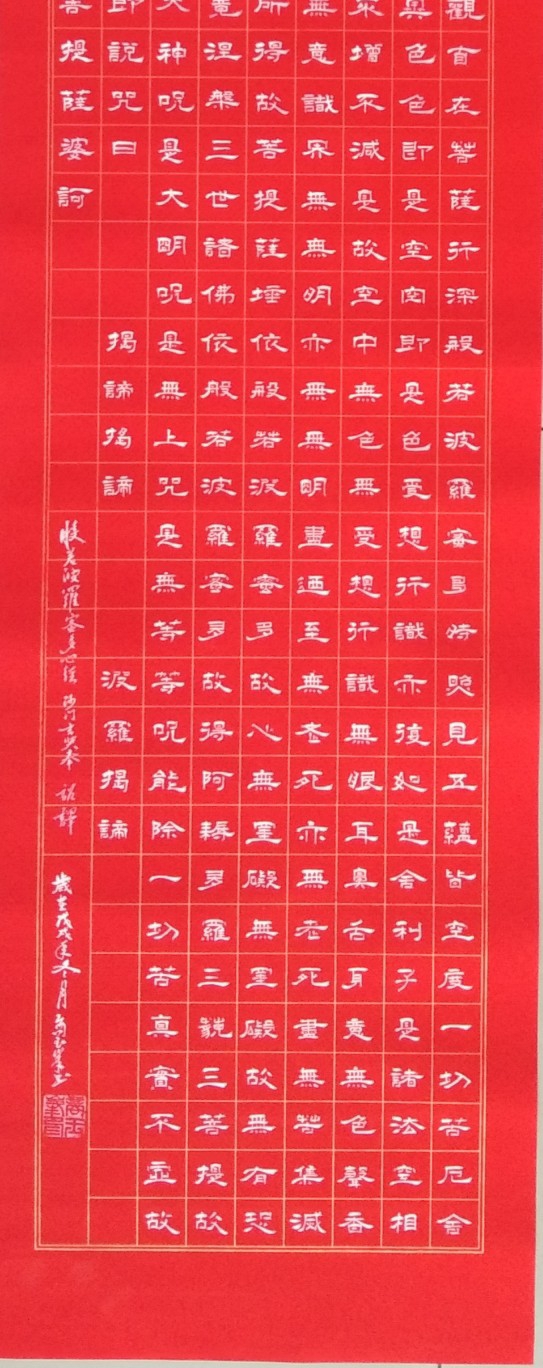 觀自在菩薩行深般若波羅蜜多時照見五蘊皆空度一切苦厄舍
異色色即是空空即是色受想行識亦復如是舍利子是諸法空相
不增不減是故空中無色無受想行識無眼耳鼻舌身意無色聲香
無意識界無無明亦無無明盡迺至無老死亦無老死盡無苦集滅
所得故菩提薩埵依般若波羅蜜多故心無罣礙無罣礙故無有恐
竟涅槃三世諸佛依般若波羅蜜多故得阿耨多羅三藐三菩提故
大神呪是大明呪是無上咒是無等等呪能除一切苦真實不虛故
即說咒曰 揭諦揭諦 波羅揭諦
菩提薩婆訶
般若波羅蜜多心經 沙門玄奘奉 詔譯
歲在戊戌年冬月